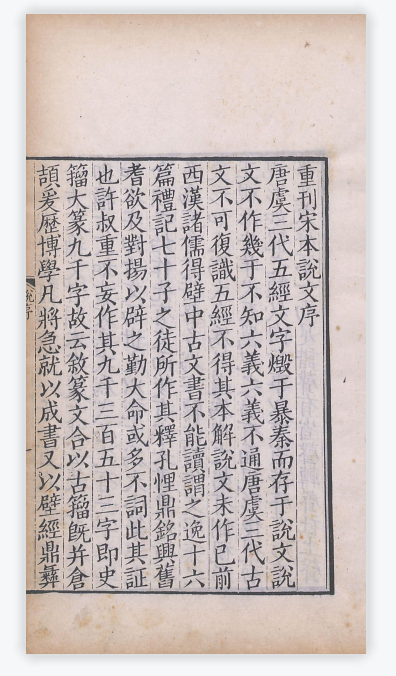 重刊宋本說文序
唐虞三代五經文字燬于暴秦而存于說文說
文不作幾于不知六義六義不通唐虞三代古
文不可復識五經不得其本解說文未作已前
西漢諸儒得壁中古文書不能讀謂之逸十六
篇禮記七十子之徒所作其釋孔悝鼎銘興舊
耆欲及對揚以辟之勤大命或多不詞此其証
也許叔重不妄作其九千三百五十三字即史
籀大篆九千字故云敘篆文合以古籀旣并倉
頡爰歷博學凡將急就以成書又以壁經鼎彝
說序